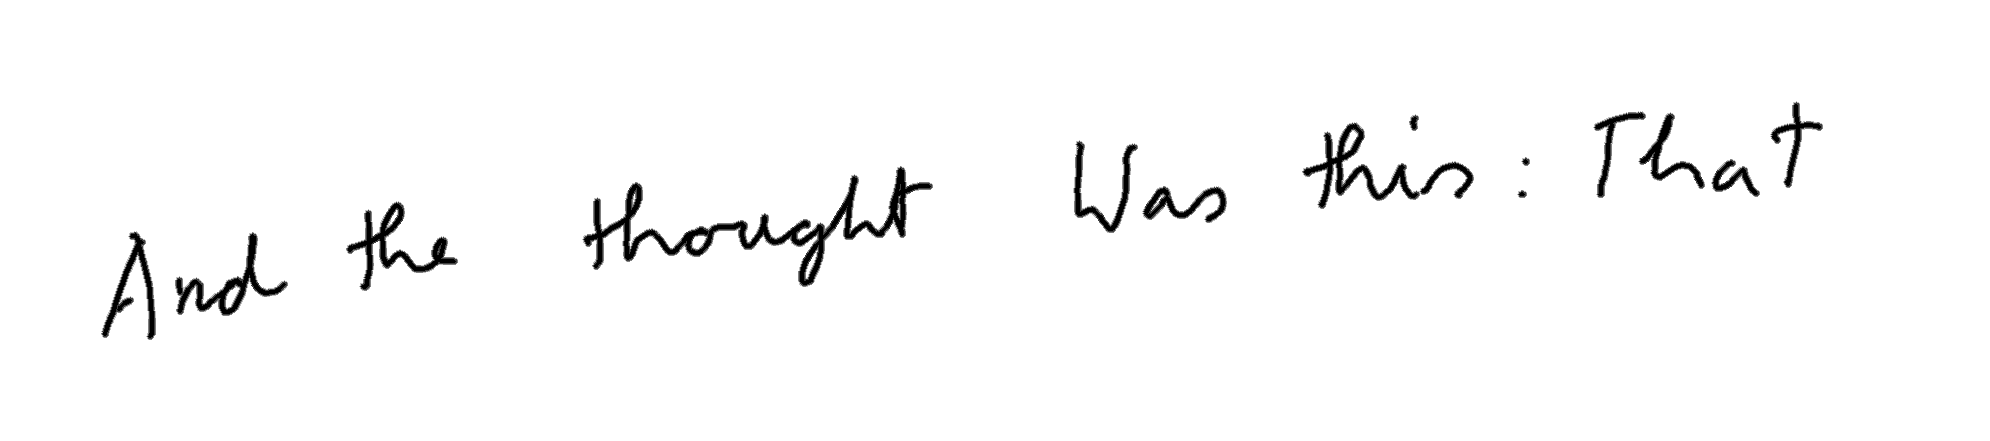 And the thought was this: That